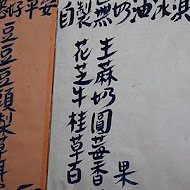 好平安
豆
豆
豆
頭
梨
自製無奶油冰淇
花生
芝麻
牛奶
桂圓
草莓
百香果